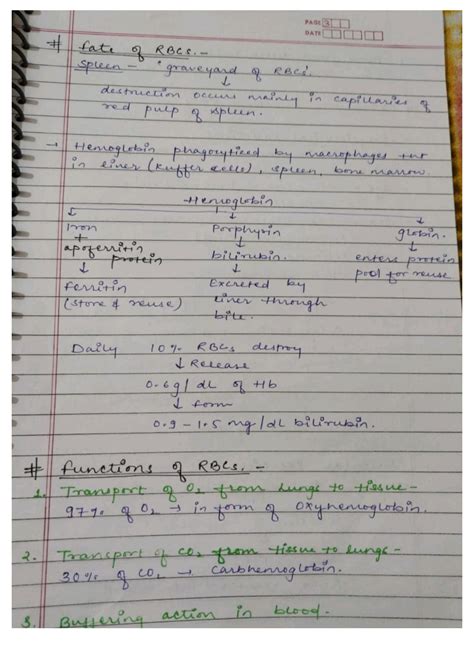 PAGE 2
DATE
# Fate of RBCs.-
Spleen - 'graveyard of RBCs'.
↓
destruction occurs mainly in capillaries of
red pulp of spleen.
→ Hemoglobin phagocyticed by macrophages
in liver (Kuffer cells), spleen, bone marrow.
Hemoglobin
↓ ↓ ↓
Iron Porphyrin globin.
+ ↓ ↓
apoferritin bilirubin. enters protein
protein pool for reuse
↓ ↓
ferritin Excreted by
(store & reuse) liver through
bile.
Daily 10% RBCs destroy
↓ Release
0.6g/dL of Hb
↓ form
0.9-1.5 mg/dL bilirubin.
# Functions of RBCs. -
1. Transport of O2 from lungs to tissue-
97% of O2 → in form of oxyhemoglobin.
2. Transport of CO2 from tissue to lungs-
30% of CO2 → Carbhemoglobin.
3. Buffering action in blood.